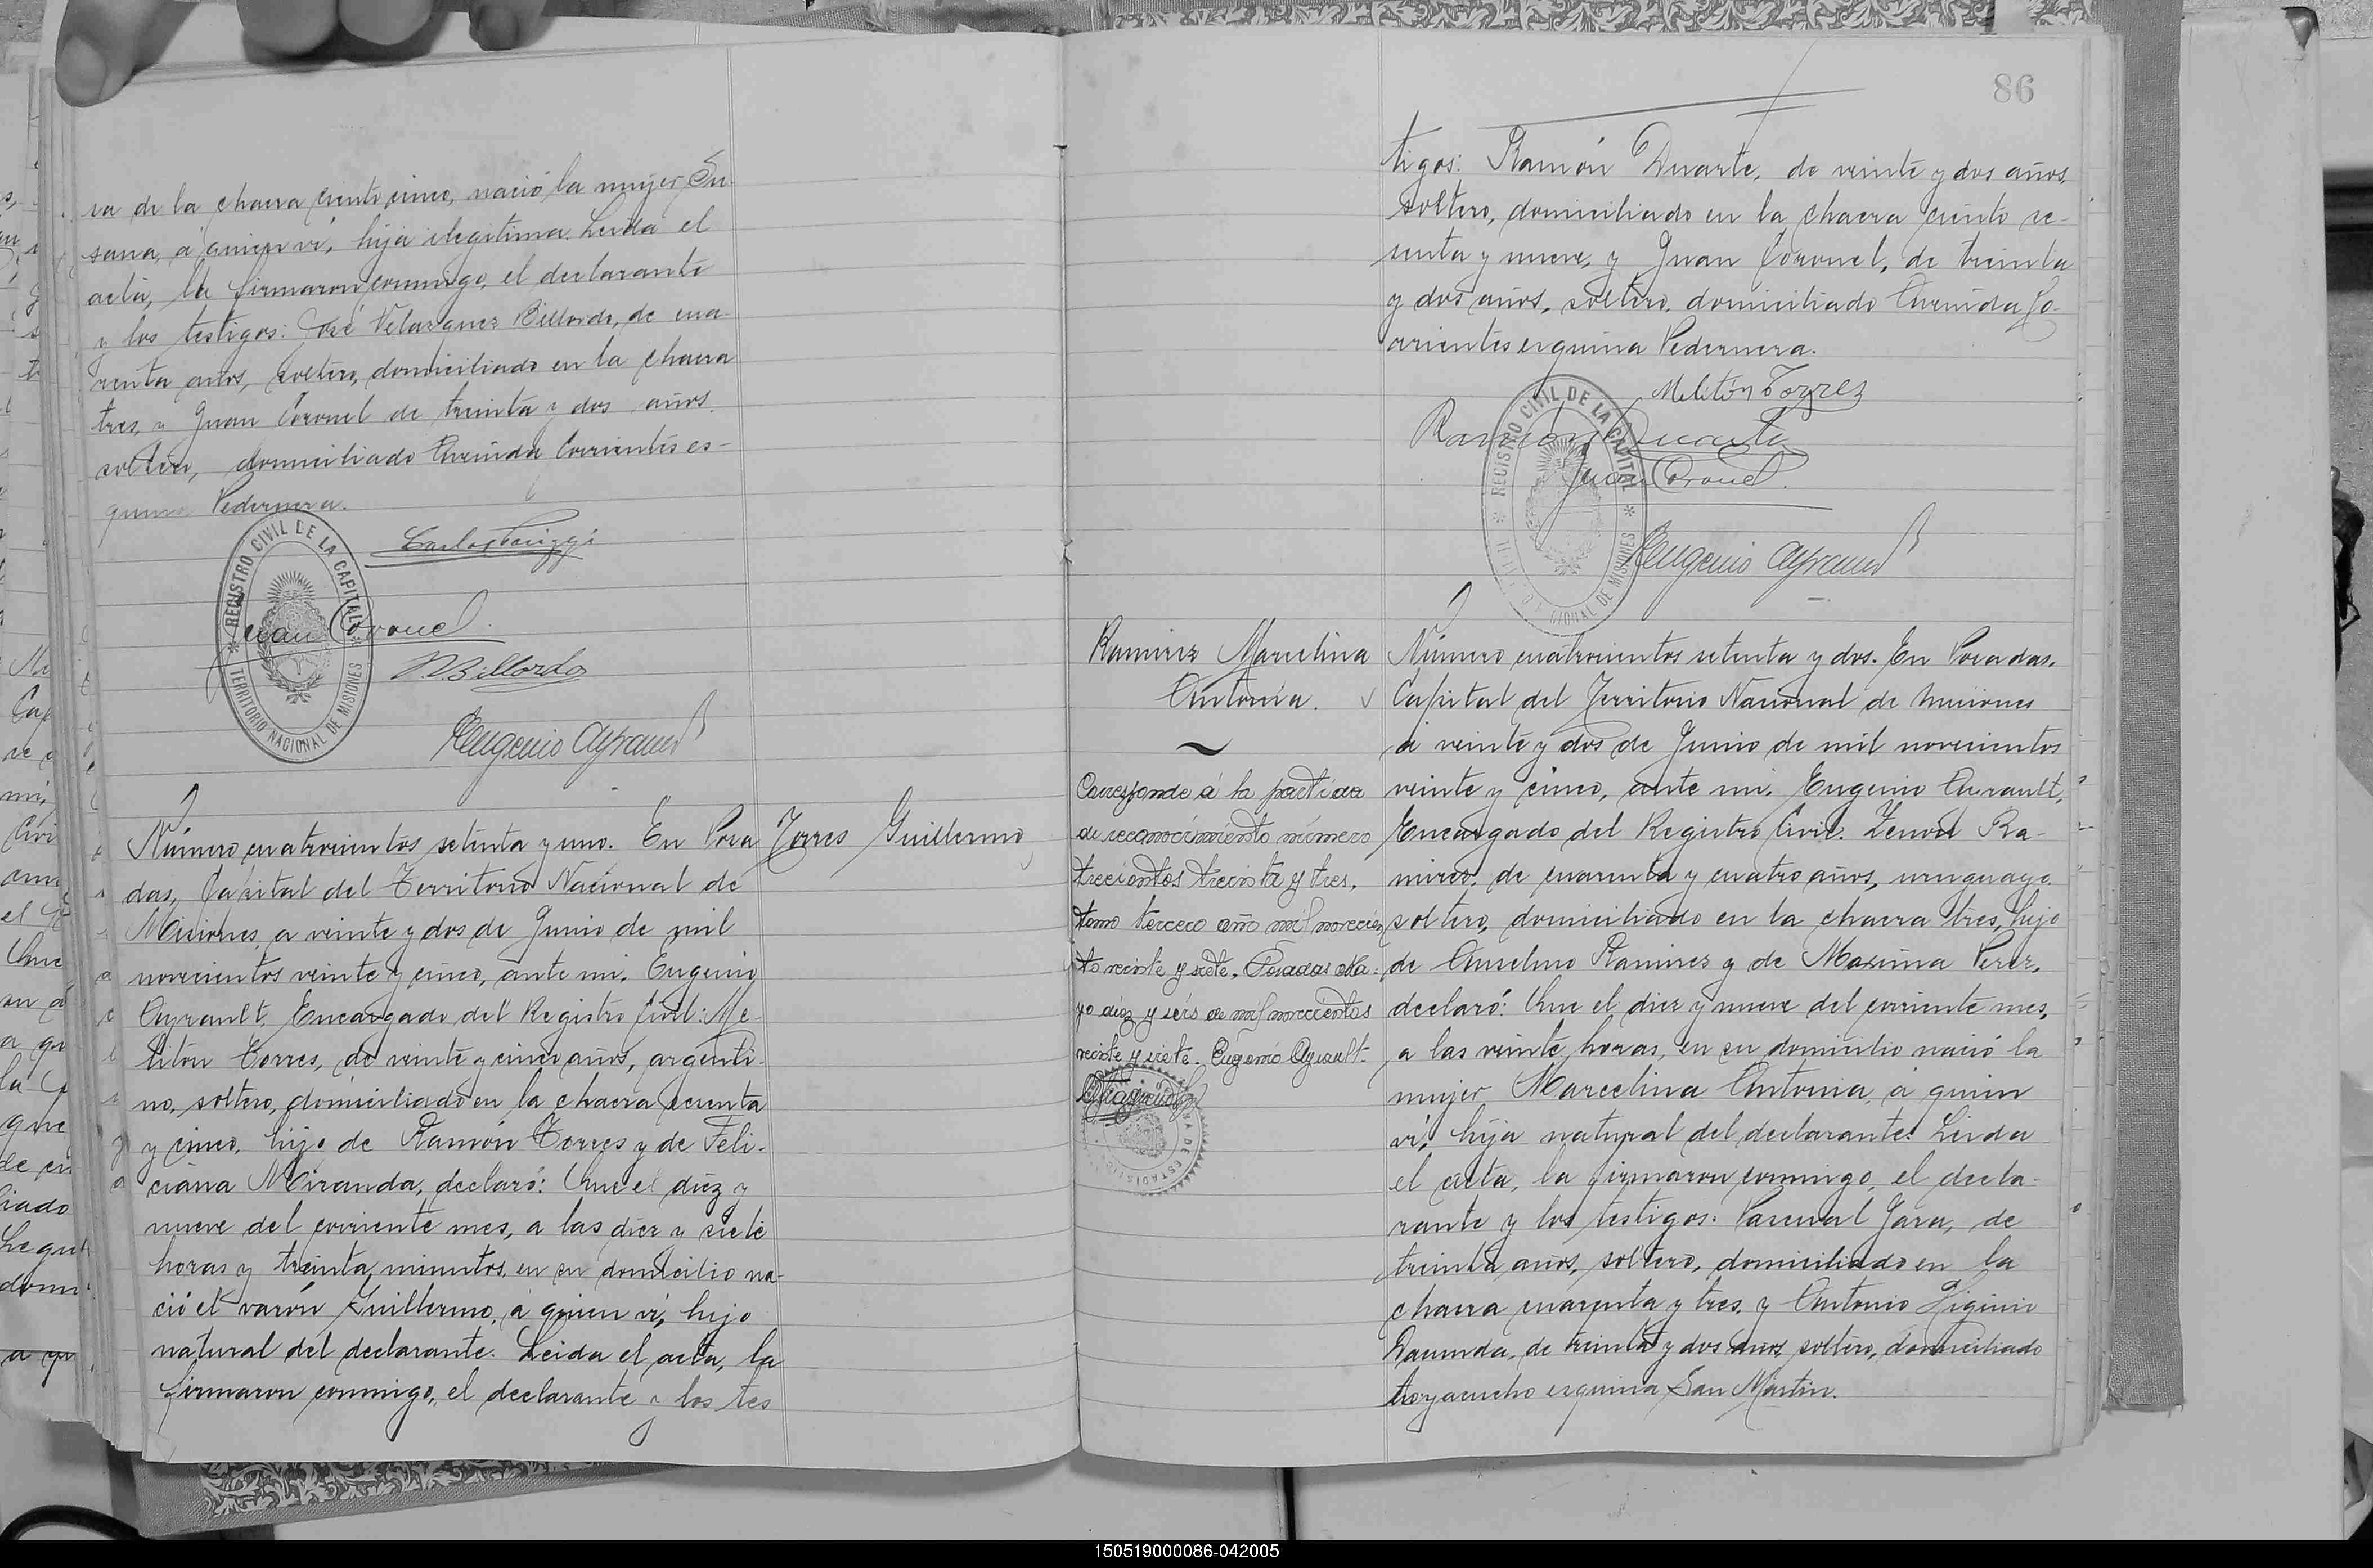 va de la chacra ciento cinco, nació la mujer Su-
sana, á quien ví, hija ilegitima. Leida el
acta, la firmaron conmigo, el declarante
y los testigos: José Velazquez Billordo, de cua-
renta años, soltero, domiciliado en la chacra
tres, y Juan Coronel de treinta y dos años.
soltero, domiciliado Avenida Corrientes es-
quina Pedernera.
Juan Coronel
Billordo
Eugenio Ayrault
REGISTRO CIVIL DE LA CAPITAL
TERRITORIO NACIONAL DE MISIONES
Torres Guillermo
Número cuatrocientos setenta y uno. En Posa
das, Capital del Territorio Nacional de
Misiones, a veinte y dos de Junio de mil
novecientos veinte y cinco, ante mi, Eugenio
Ayrault, Encargado del Registro Civil: Me-
litón Torres, de veinte y cinco años, argenti-
no, soltero, domiciliado en la chacra
y cinco, hijo de Ramón Torres y de Feli-
ciana Miranda, declaró: Que el diez y
nueve del corriente mes, a las diez y siete
horas y treinta minutos, en su domicilio na-
ció el varón Guillermo, á quien ví, hijo
natural del declarante. Leida el acta, la
firmaron conmigo, el declarante y los tes
86
tigos: Ramón Duarte, de veinte y dos años,
soltero, domiciliado en la chacra ciento se-
tenta y nueve, y Juan Coronel, de treinta
y dos años, soltero, domiciliado Avenida Co-
rrientes esquina Pedernera.
Melitón Torres
Ramón Duarte
Juan Coronel
Eugenio Ayrault
REGISTRO CIVIL DE LA CAPITAL
Ramirez Marcelina
Antonia.
Corresponde á la partida
de reconocimiento número
trecientos treinta y tres,
tomo tercero año mil novecien
to veinte y siete. Posadas Ma-
yo diez y seis de mil novecientos
veinte y siete. Eugenio Ayrault.
Número cuatrocientos setenta y dos. En Posadas,
Capital del Territorio Nacional de Misiones
á veinte y dos de Junio de mil novecientos
veinte y cinco, ante mi, Eugenio Ayrault,
Encargado del Registro Civil: Zenon Ra-
mirez, de cuarenta y cuatro años, uruguayo
soltero, domiciliado en la chacra tres, hijo
de Anselmo Ramirez y de Maxima Perez,
declaró: Que el diez y nueve del corriente mes,
a las veinte horas, en su domicilio nació la
mujer Marcelina Antonia, á quien
ví, hija natural del declarante. Leida
el acta, la firmaron conmigo, el decla-
rante y los testigos: Pascual Jara, de
treinta años, soltero, domiciliado en la
chacra cuarenta y tres, y Antonio Higinio
de treinta y dos años, soltero, domiciliado
esquina San Martin.
150519000086-042005